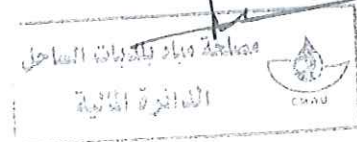 مصلحة مياه بلديات الساحل
الدائرة الفنية
CMWU